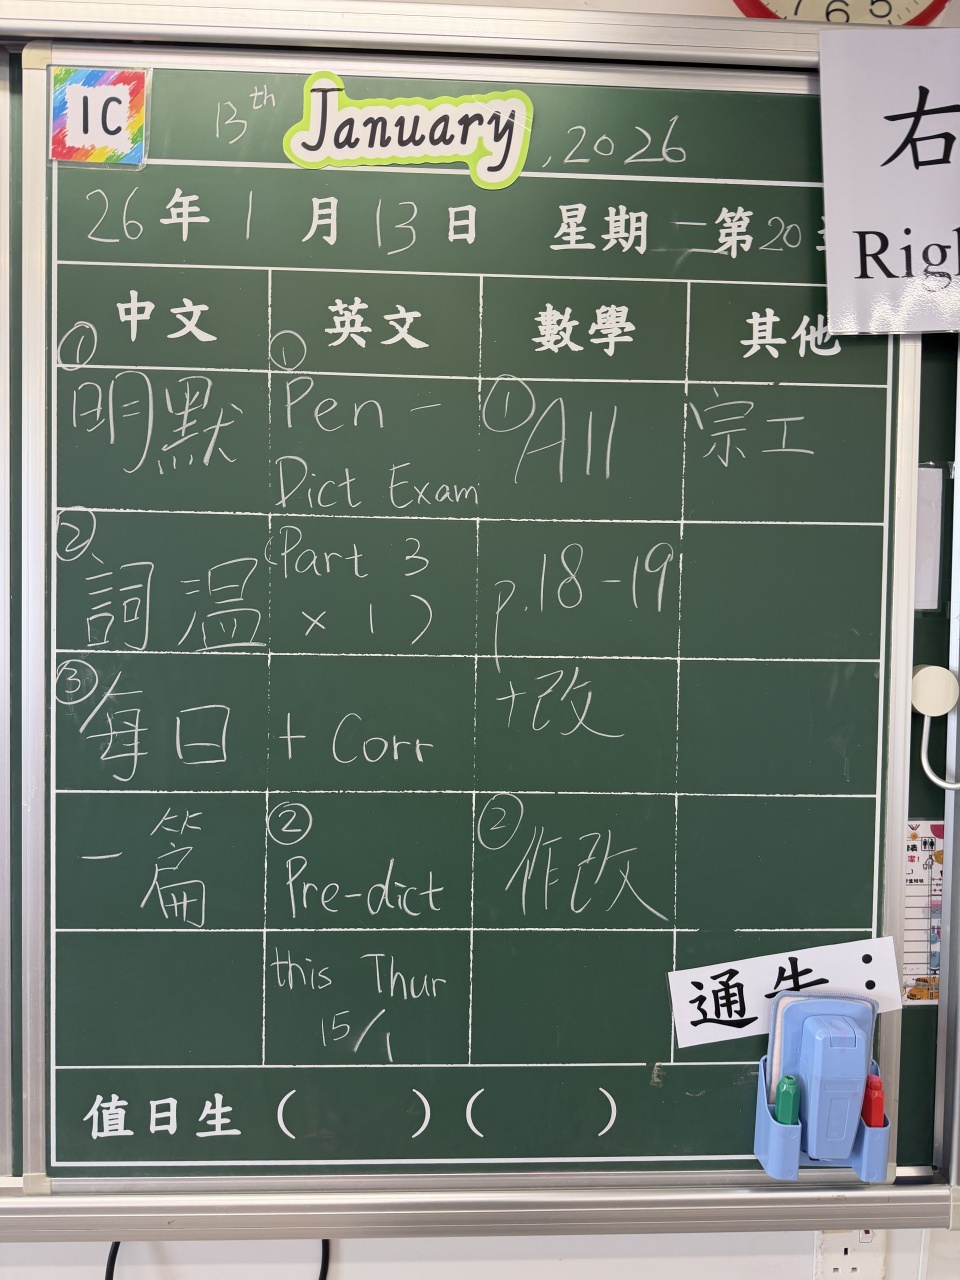 6 5
1C
13th January, 2026
26年1月13日 星期二 第20
右
Right
中文
①
明默
②
詞溫
③
每日
一篇
英文
①
Pen-
Dict Exam
(Part 3
x 1)
+ Corr
②
Pre-dict
this Thur
15/1
數學
①
All
p.18-19
+改
②
作改
其他
宗工
通告:
值日生 ( ) ( )